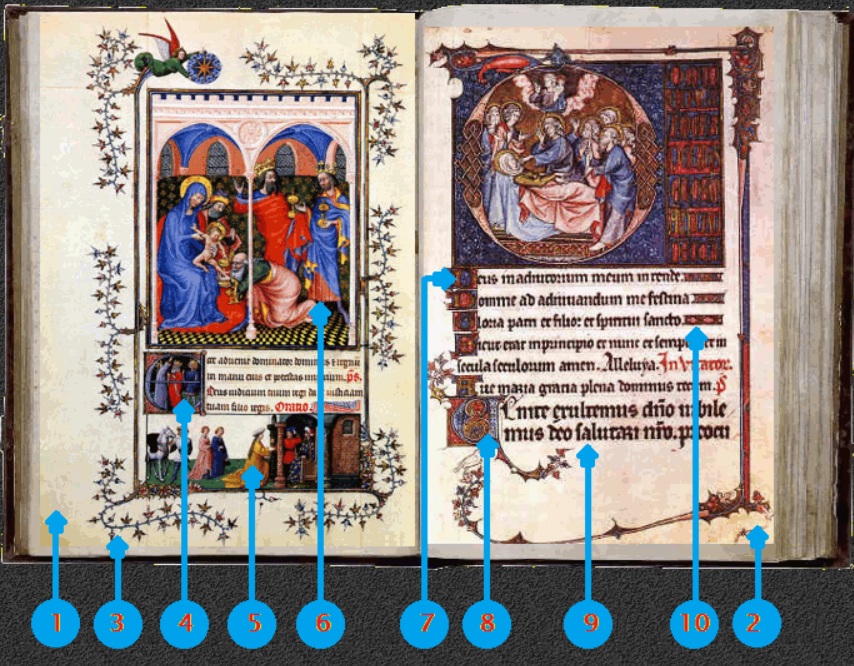 cce aduenit dominator dominus & regnu
in manu eius et potestas imperium. ps.
Deus iudicium tuum regi da iusticiam
tuam filio regis. Oratio.
Deus in adiutorium meum intende
Domine ad adiuuandum me festina
Gloria patri et filio: et spiritui sancto
Sicut erat in principio et nunc et semper et in
secula seculorum amen. Alleluya. Inuitator.
Aue maria gratia plena dominus tecum. p̃
Venite exultemus dño iubile
mus deo salutari nr̃o. preoccu
1 3 4 5 6 7 8 9 10 2